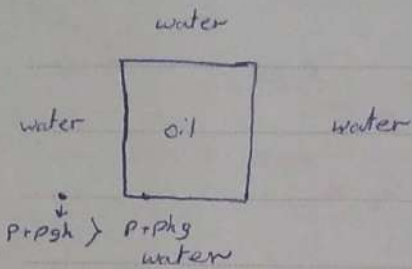 water
water oil water
P+ρgh > P+ρhg
water